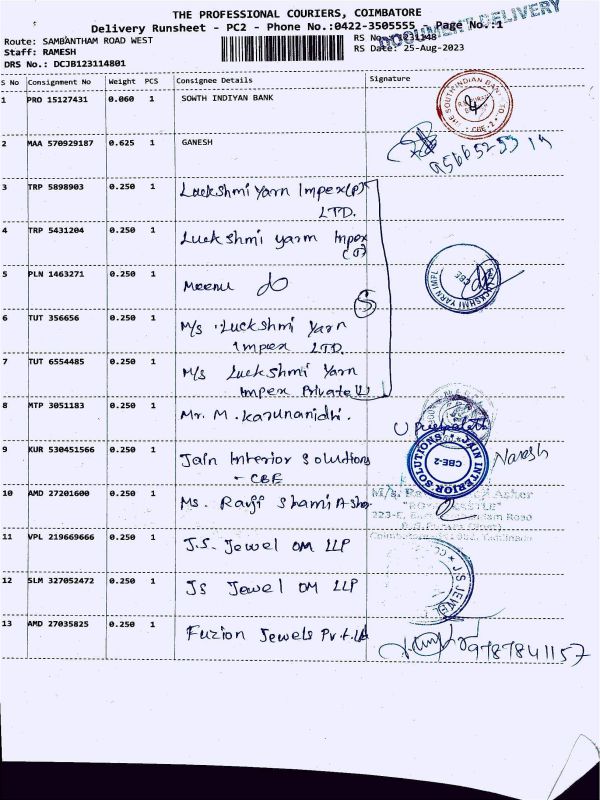 THE PROFESSIONAL COURIERS, COIMBATORE
DOCUMENT DELIVERY
Delivery Runsheet - PC2 - Phone No.:0422-3505555 Page No.:1
Route: SAMBANTHAM ROAD WEST
RS No.
Staff: RAMESH
RS Date: 25-Aug-2023
DRS No.: DCJB123114801
S No Consignment No Weight PCS Consignee Details Signature
1 PRO 15127431 0.060 1 SOWTH INDIYAN BANK
THE SOUTH INDIAN BANK LTD
CBE-2
2 MAA 570929187 0.625 1 GANESH
3 TRP 5898903 0.250 1 Luckshmi Yarn Impex(P)
LTD.
4 TRP 5431204 0.250 1 Luckshmi yarn Impex
5 PLN 1463271 0.250 1 Meenu do
LUCKSHMI YARN IMPE
CBE
(5)
6 TUT 356656 0.250 1 M/s Luckshmi Yarn
Impex LTD.
7 TUT 6554485 0.250 1 M/s Luckshmi Yarn
Impex Private
8 MTP 3051183 0.250 1 Mr. M. Karunanidhi.
9 KUR 530451566 0.250 1 Jain Interior Solutions
- CBE
JAIN INTERIOR SOLUTIONS
CBE-2
Naresh
10 AMD 27201600 0.250 1 Ms. Ravji Shamji Asher
M/s. Asher
11 VPL 219669666 0.250 1 J.S. Jewel OM LLP
12 SLM 327052472 0.250 1 JS Jewel OM LLP
J.S JEWEL
13 AMD 27035825 0.250 1 Fuzion Jewels Pvt.Ltd
9787841157